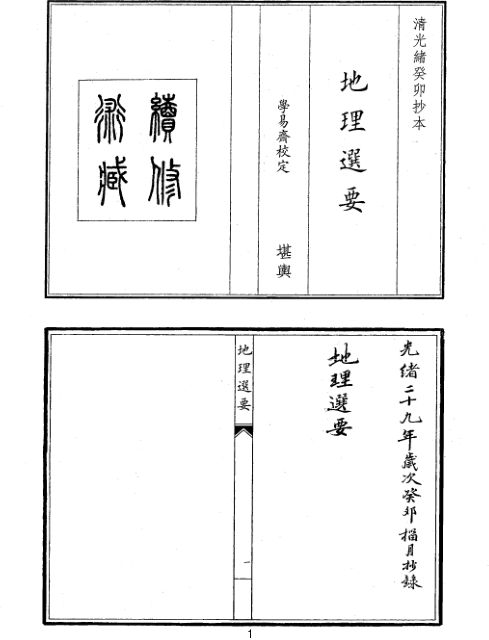 清光緒癸卯抄本
地理選要
學易齋校定 堪輿
續修
術藏
光緒二十九年歲次癸卯榴月抄錄
地理選要
地理選要
一
1